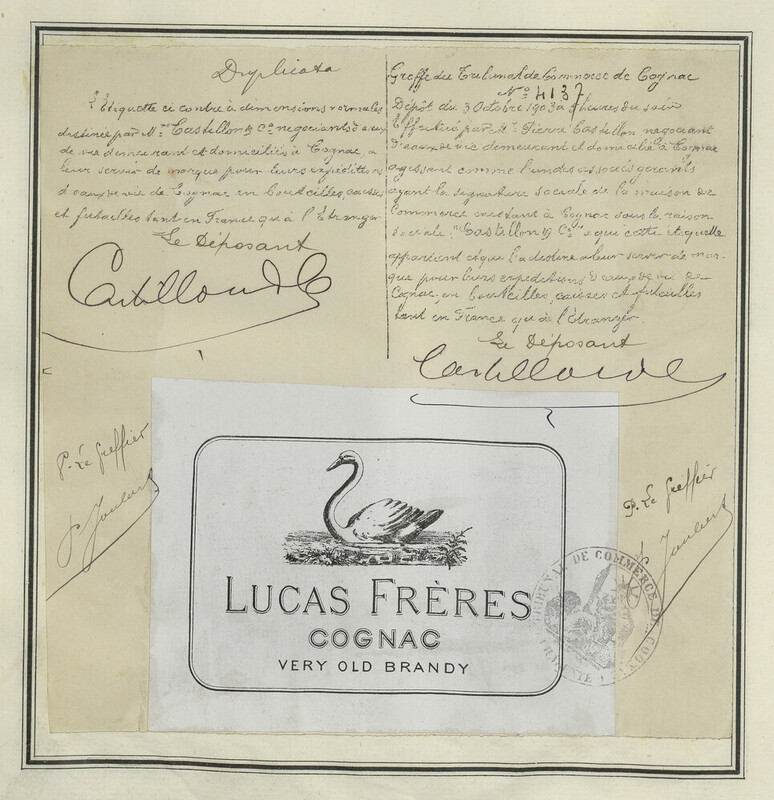 Duplicata
L'Etiquette ci contre à dimensions normales
destinée par Mrs Castillon & Co négociants d'eaux
de vie demeurant et domiciliés à Cognac, a
leur servir de marque pour leurs expéditions
d'eaux de vie de Cognac en bouteilles, caisses
et futailles tant en France qu'à l'Etranger
Le Déposant
Castillon & Co
Greffe du Tribunal de Commerce de Cognac
No 4137
Dépôt du 3 Octobre 1903 a heures du soir
Effectué par Mr Pierre Castillon negociant
d'eaux de vie demeurant et domicilié à Cognac
agissant comme l'un des associés gerants
ayant la signature sociale de la maison de
Commerce existant à Cognac sous la raison
sociale "Castillon & Co" a qui cette etiquette
appartient et qui l'a destine a leur servir de mar-
que pour leurs expeditions d'eaux de vie de
Cognac, en bouteilles, caisses et futailles
tant en France qu'à l'étranger
Le Déposant
Castillon & Co
P. Le Greffier
P. Le Greffier
LUCAS FRÈRES
COGNAC
VERY OLD BRANDY
TRIBUNAL DE COMMERCE DE COGNAC